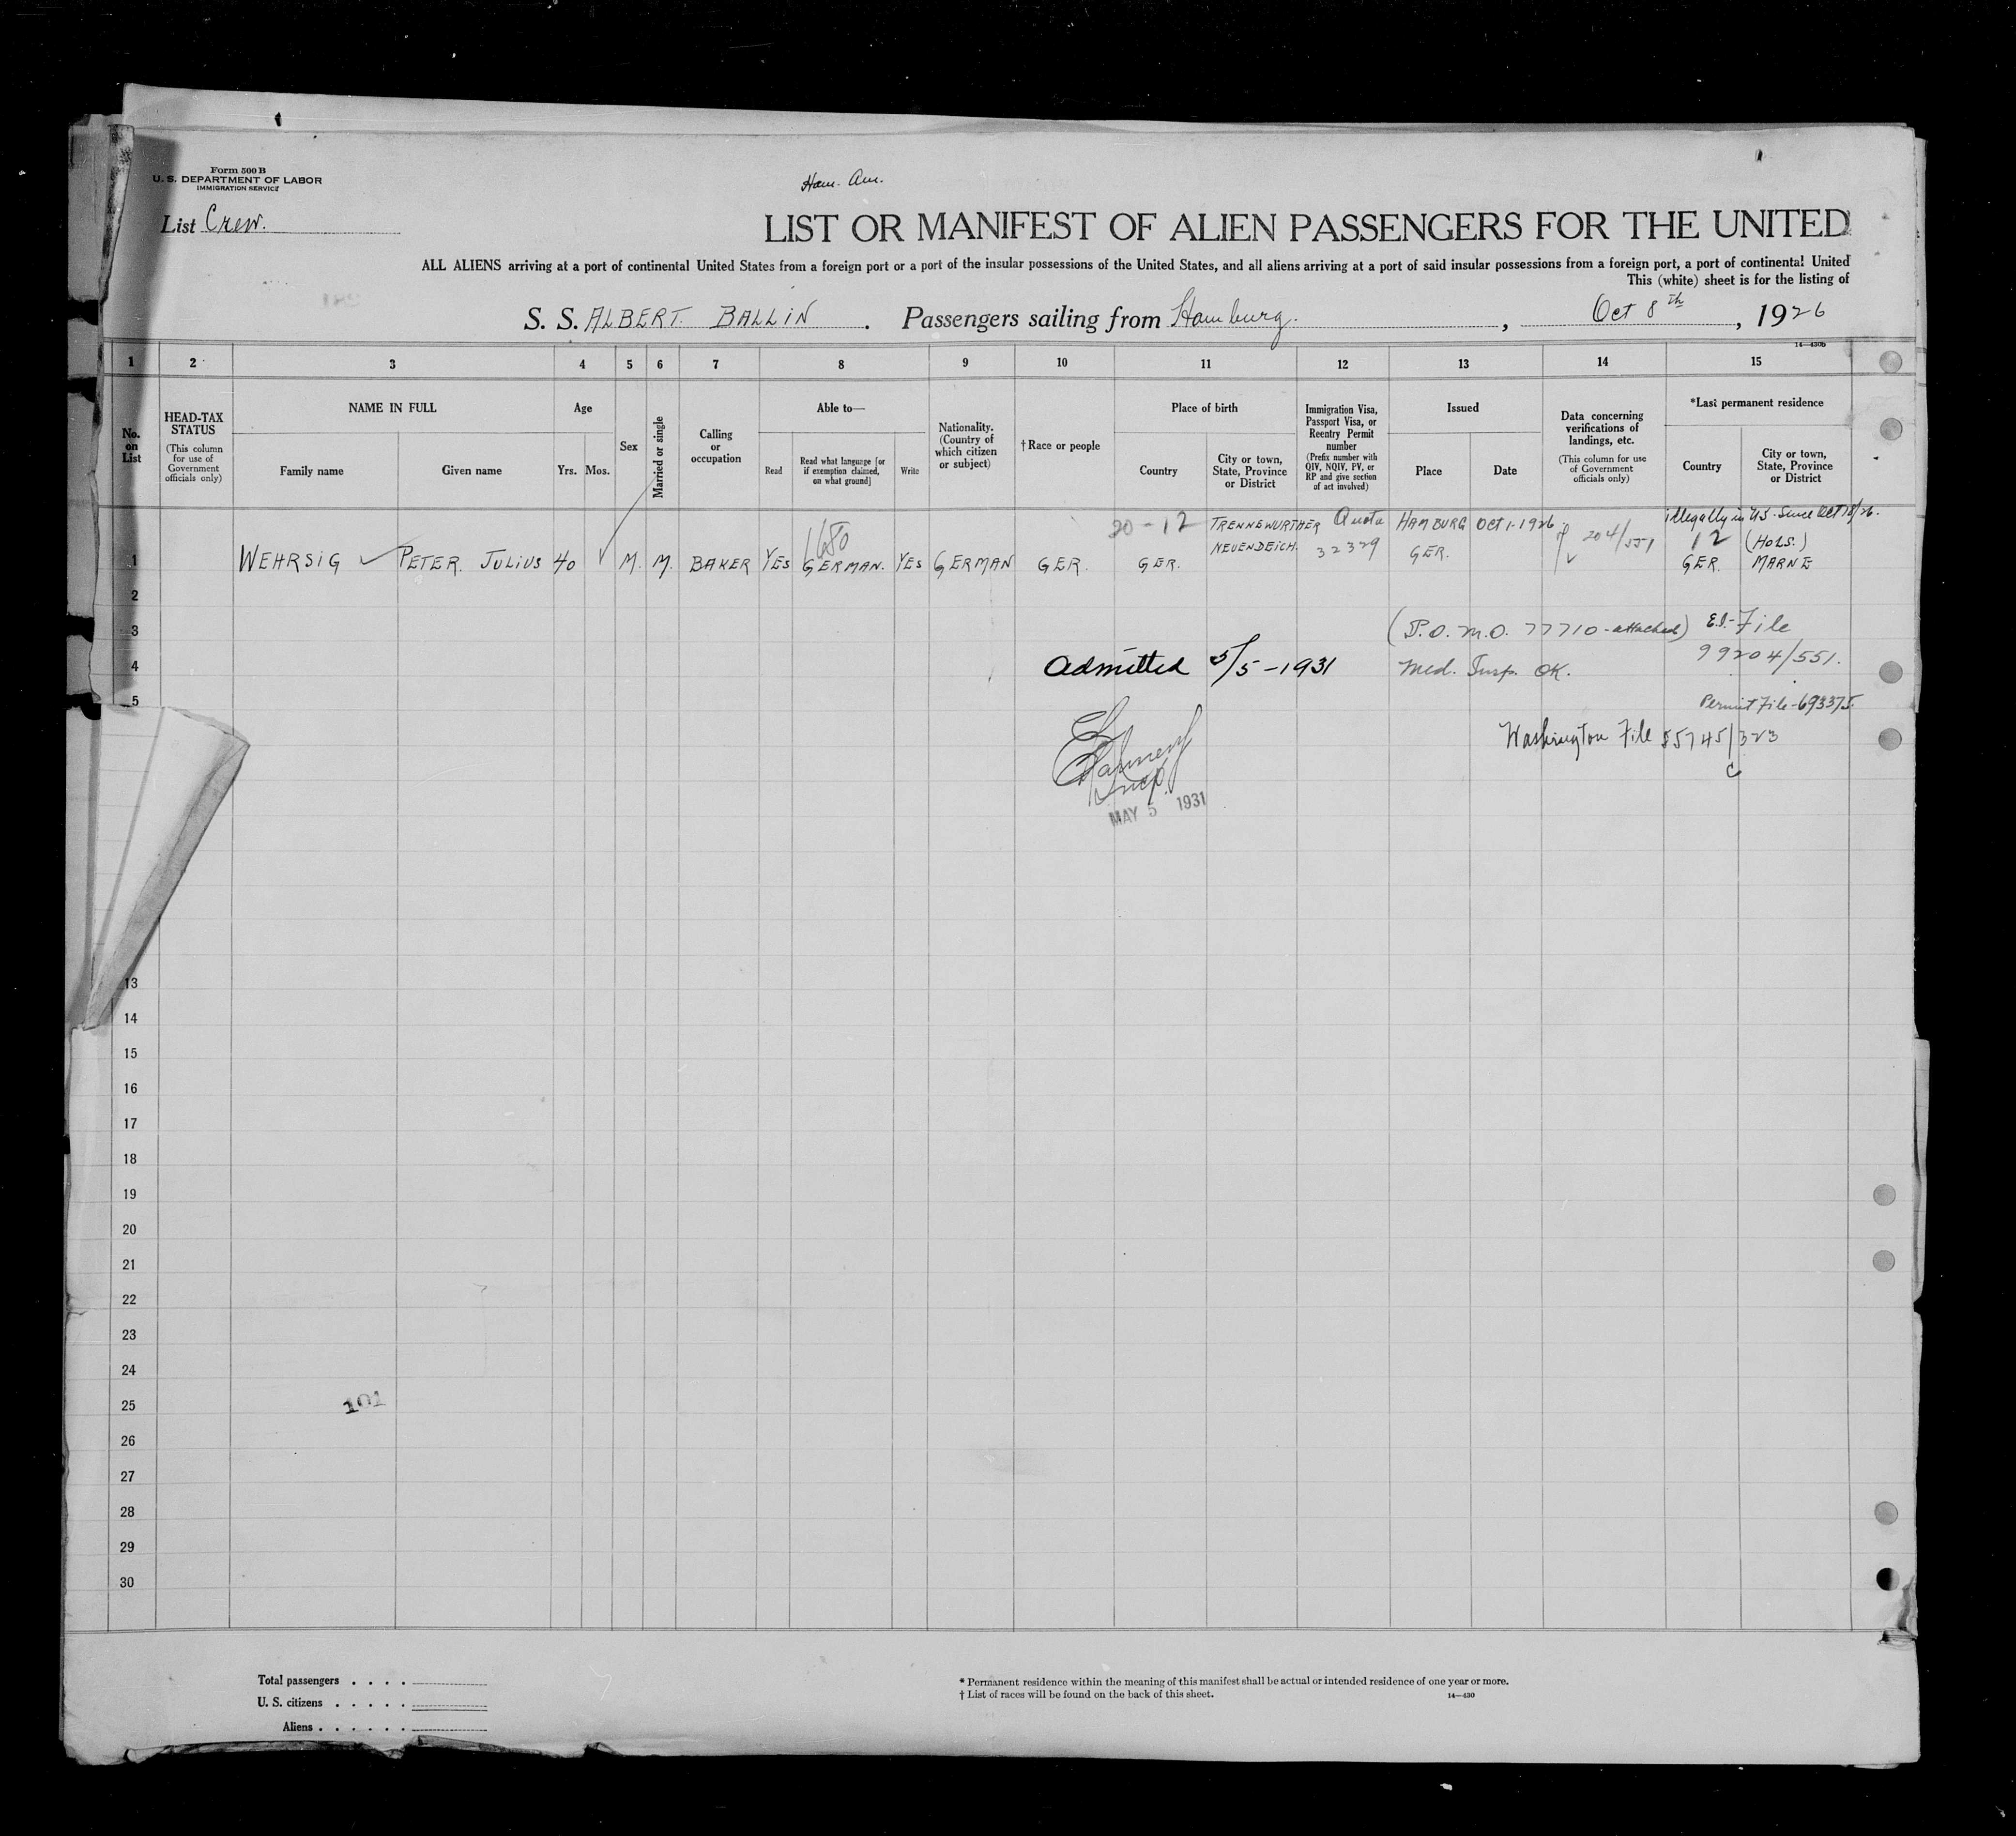 Form 500 B
U. S. DEPARTMENT OF LABOR
IMMIGRATION SERVICE
Ham. Am.
List Crew.
LIST OR MANIFEST OF ALIEN PASSENGERS FOR THE UNITED
ALL ALIENS arriving at a port of continental United States from a foreign port or a port of the insular possessions of the United States, and all aliens arriving at a port of said insular possessions from a foreign port, a port of continental United
This (white) sheet is for the listing of
S. S. ALBERT BALLIN . Passengers sailing from Hamburg. , Oct 8th , 1926
14—430b
1 2 3 4 5 6 7 8 9 10 11 12 13 14 15
No. on List
HEAD-TAX STATUS
(This column for use of Government officials only)
NAME IN FULL
Family name Given name
Age
Yrs. Mos.
Sex
Married or single
Calling or occupation
Able to—
Read
Read what language [or if exemption claimed, on what ground]
Write
Nationality. (Country of which citizen or subject)
† Race or people
Place of birth
Country
City or town, State, Province or District
Immigration Visa, Passport Visa, or Reentry Permit number
(Prefix number with QIV, NQIV, PV, or RP and give section of act involved)
Issued
Place Date
Data concerning verifications of landings, etc.
(This column for use of Government officials only)
*Last permanent residence
Country
City or town, State, Province or District
illegally in U.S. Since Oct 18/26.
20-12 TRENNEWURTHER Quota HAMBURG OCT 1-1926
1680 NEUENDEICH. 32329 GER. 204/551 12 (HOLS.)
1 WEHRSIG PETER JULIUS 40 M. M. BAKER YES GERMAN. YES GERMAN GER. GER. GER. MARNE
2
3 (P.O.M.O. 77710-attached) E.I.-File
4 Admitted 5/5-1931 Med. Insp. OK. 99204/551.
5 Permit File-693375.
Washington File 55745/323
C
Insp.
MAY 5 1931
13
14
15
16
17
18
19
20
21
22
23
24
25
101
26
27
28
29
30
Total passengers . . . .
U. S. citizens . . . . .
Aliens . . . . . .
* Permanent residence within the meaning of this manifest shall be actual or intended residence of one year or more.
† List of races will be found on the back of this sheet.
14—430